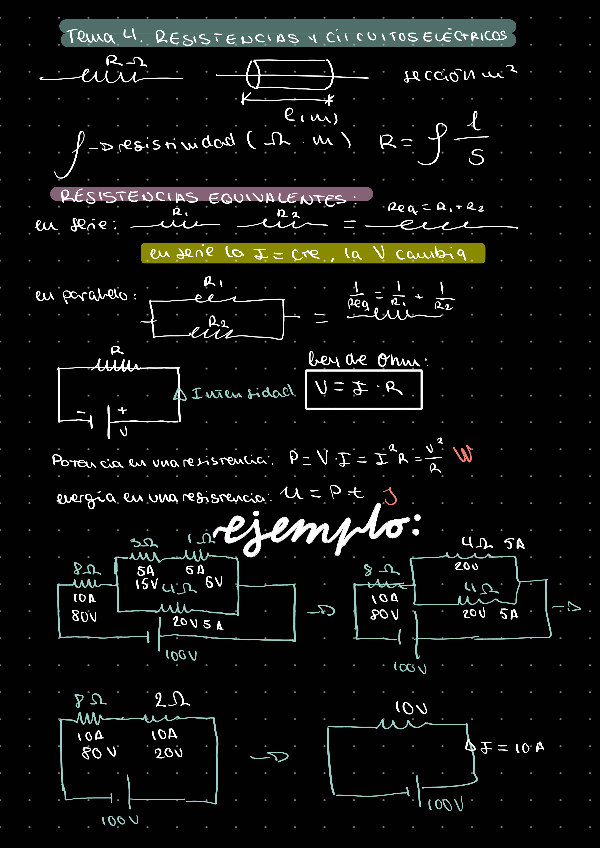 Tema 4. RESISTENCIAS Y CIRCUITOS ELÉCTRICOS
R Ω
sección m²
l(m)
ρ → resistividad (Ω · m) R = ρ l/S
RESISTENCIAS EQUIVALENTES:
en serie: R1 R2 = Req = R1 + R2
en serie la I = cte, la V cambia
en paralelo: R1 R2 = 1/Req = 1/R1 + 1/R2
R
- + V
Intensidad
Ley de Ohm:
V = I · R
Potencia en una resistencia: P = V · I = I²R = V²/R W
energía en una resistencia: U = P t J
ejemplo:
3Ω 1Ω
8Ω 5A 5A
10A 15V 4Ω 5V
80V 20V 5A
100V
4Ω 5A
20V
8Ω 4Ω
10A 20V 5A
80V
100V
8Ω 2Ω
10A 10A
80V 20V
100V
10V
I = 10A
100V